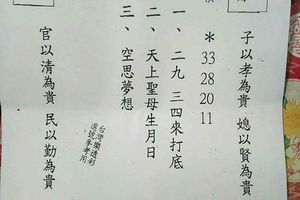 子以孝為貴 媳以賢為貴
*33 28 20 11
一、二九 三四來打底
二、天上聖母生月日
三、空思夢想
台灣樂透彩
選號參考用
官以清為貴 民以勤為貴